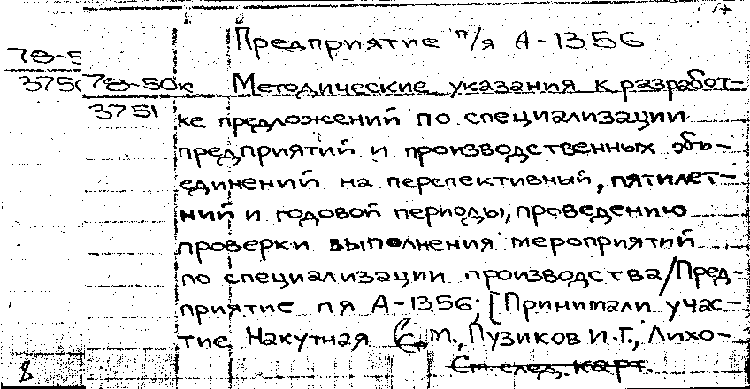 Предприятие п/я А-1356
78-5
375
78-50к
3751
Методические указания к разработ-
ке предложений по специализации
предприятий и производственных объ-
единений на перспективный, пятилет-
ний и годовой периоды, проведению
проверки выполнения мероприятий
по специализации производства/Пред-
приятие п я А-1356; [Принимали учас-
тие Накутная С.М., Пузиков И.Г., Лихо-
См. след. карт.
8